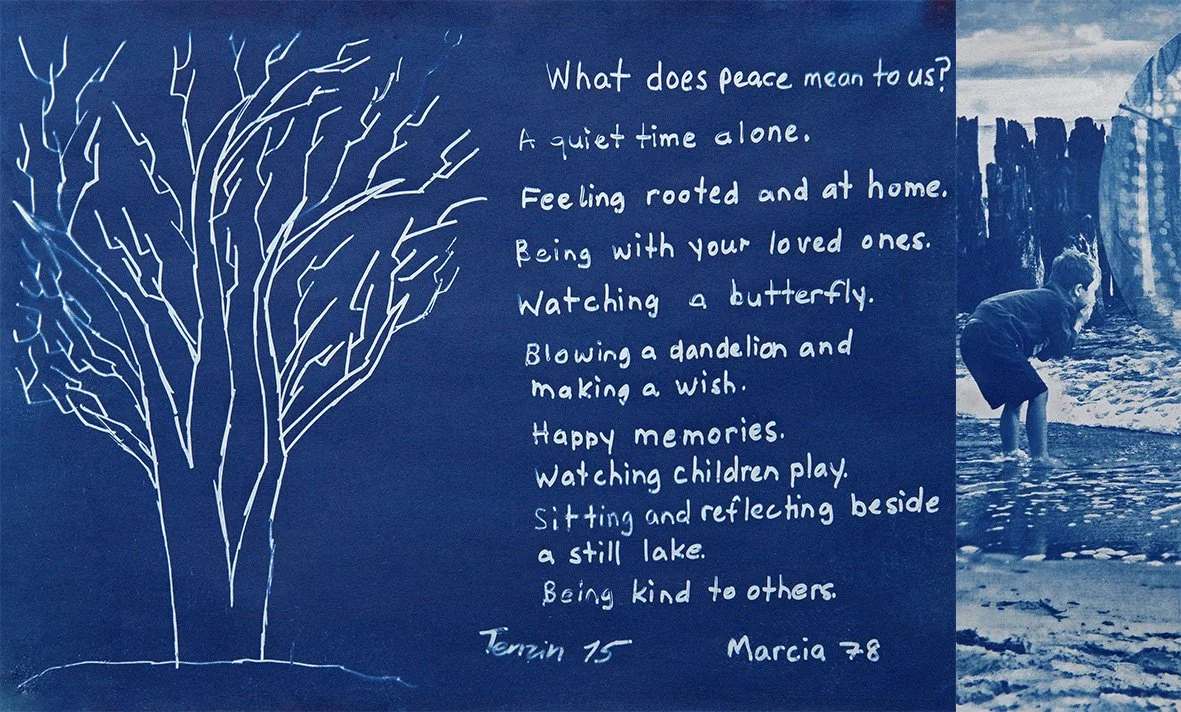 What does peace mean to us?
A quiet time alone.
Feeling rooted and at home.
Being with your loved ones.
Watching a butterfly.
Blowing a dandelion and
making a wish.
Happy memories.
Watching children play.
Sitting and reflecting beside
a still lake.
Being kind to others.
Tenzin 15 Marcia 78